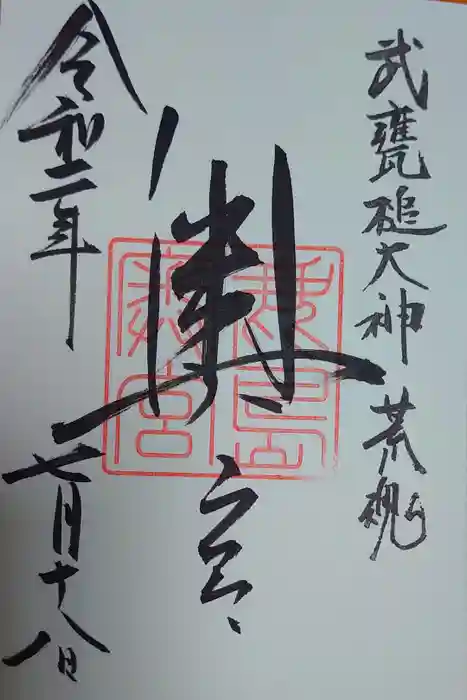 武甕槌大神 荒魂
奥宮
鹿島
奥宮
令和二年
七月十八日